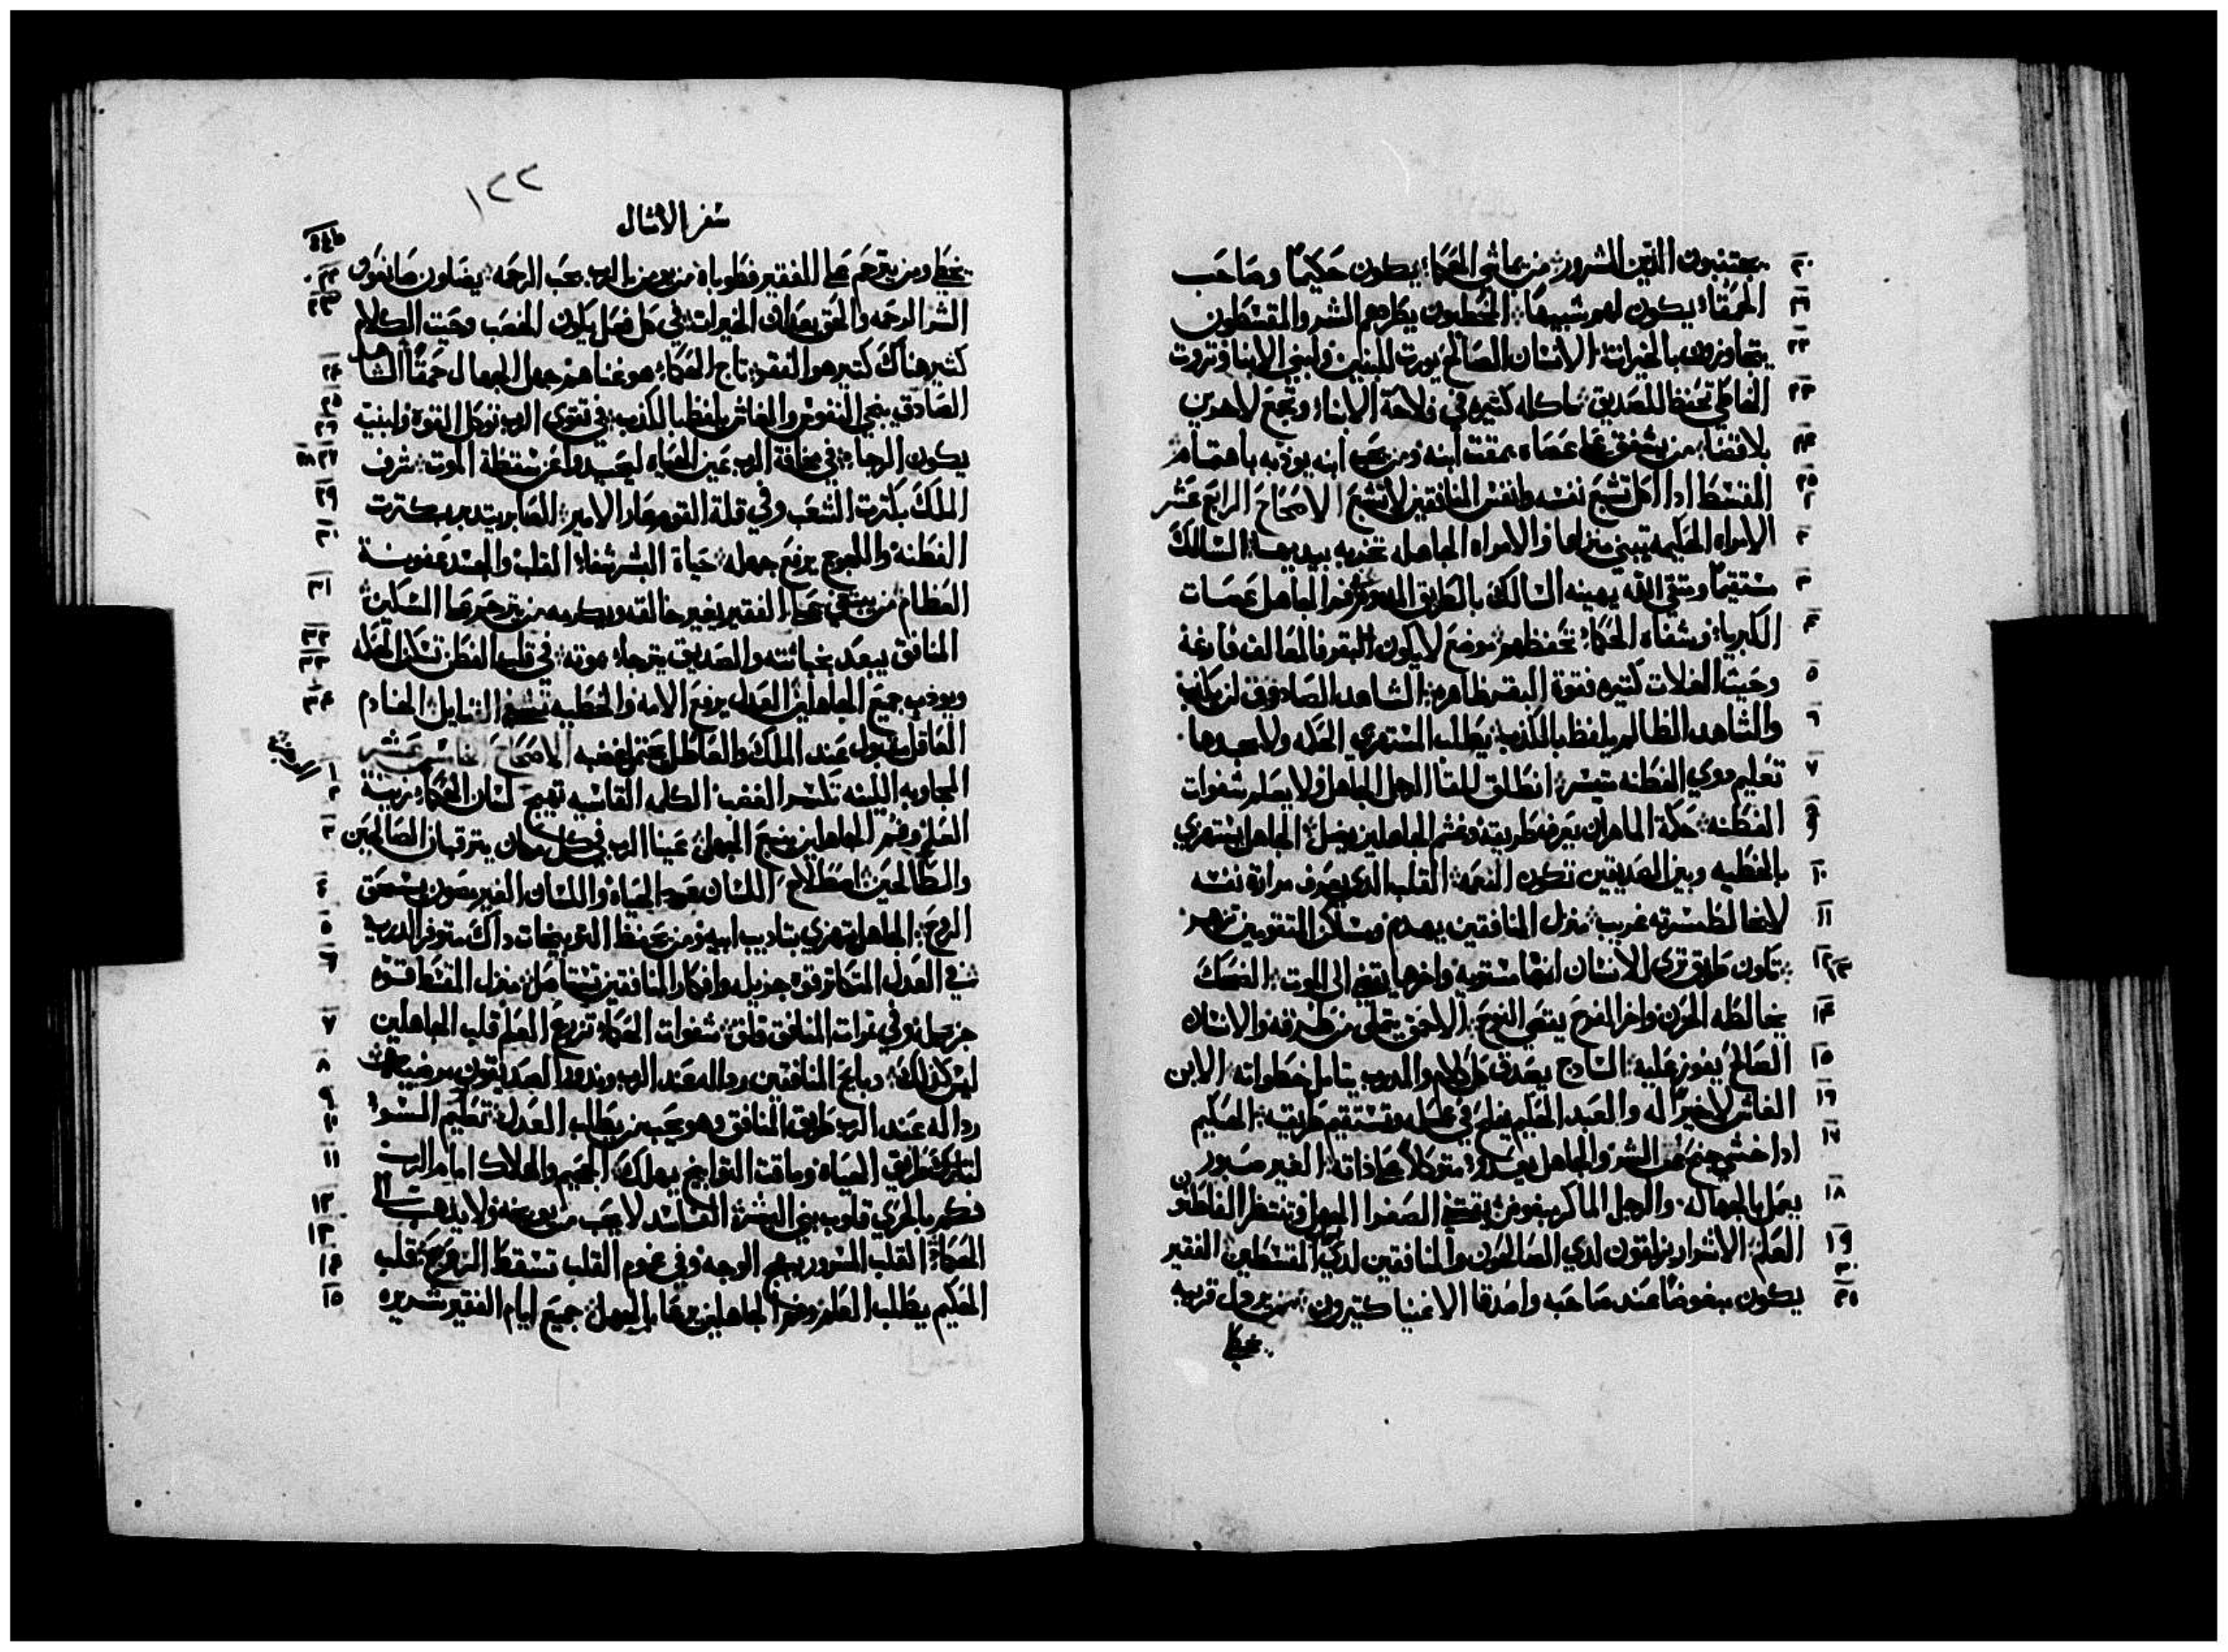 يجتنبون الذين الشرور من يماشي الحكماء يكون حكيماً وصاحب
الحمقاء يكون لهم شبيهاً الخطيون يطردهم الشر والمقسطون
يتجاوزون بالخيرات الانسان الصالح يورت للبنين ولبني الابنا وتروت
الخاطي تحفظ للصديق ماكله كثيره في فلاحة الاباء وتجمع لاخرين
بلا قضاء من يشفق على عصاه يمقت ابنه ومن يحب ابنه يودبه باهتمام
المقسط ادا اكل تشبع نفسه وانفس المنافقين لا تشبع الاصحاح الرابع عشر
الامراه الحكيمه تبني منزلها والامراه الجاهله تخربه بيديها السالك
مستقيماً ومتقي الله يهينه السالك بالطريق المعوج في فم الجاهل عصات
الكبرياء وشفاه الحكماء تحفظهم موضع لا يكون البقر فالمعالف فارغة
وحيت الغلات كتيره فقوة البقر ظاهره الشاهد الصادق لن يكذب
والشاهد الظالم يلفظ بالكذب يطلب المستهزي الحكمه ولا يجدها
تعليم دوي الفطنه متيسر انطلق للقا الرجل الجاهل ولا يعلم شفوات
الفطنه حكمة الماهر ان يعرف طريقه وغشم الجاهلين يضل الجاهل يستهزي
بالخطيه وبين الصديقين تكون النعمه القلب الدي يعرف مرارة نفسه
لا يخالط مسرته غريب منزل المنافقين يهدم ومساكن المتقومين تزهر
تكون طريق ترى للانسان انها مستقيمه واخرها يقضي الى الموت الضحك
يخالطه الحزن واخر الفرح يقضي النوح الاحمق يتملى من طرقه والانسان
الصالح يفوز عليه السادج يصدق كل كلام والمدرب يتامل خطواته الابن
الغاش لا خير له والعبد الحكيم يفلح في عمله وتستقيم طريقه الحكيم
ادا خشي جنح عن الشر والجاهل يعدو متوكلاً على داته الغير صبور
يعمل بالجهاله والرجل الماكر مبغوض يقتني الصغوا الجهل وتنتظر الفاطنون
العلم الاشرار يزلقون لدي الصالحون والمنافقين لدي المقسطين الفقير
يكون مبغوضاً عند صاحبه واصدقا الاغنيا كتيرون من يردل قريبه
يخطي
١٢٢
سفر الامثال
يخطي ومن يترحم على الفقير فطوباه من يومن بالرب يحب الرحمه يضلون صانعون
الشر الرحمه والحق يعدان الخيرات في كل فعل يكون الخصب وحيت الكلام
كثير هناك كتير هو الفقر تاج الحكماء هو غناهم جهل الجهال حمقاً الشاهد
الصادق ينجي النفوس والغاش يلفظ بالكذب في تقوى الرب توكل القوه ولبنيه
يكون الرجاء في مخافة الرب عين الحياه ليحيد بها عن سقطة الموت شرف
الملك بكترت الشعب وفي قلة القوم عار الامير الصابر يتدبر بكترت
الفطنه واللجوج يرفع جهله حياة البشر شفاء القلب والحسد عفونة
العظام من يبتغي على الفقير يغير خالقه ويكرمه من يترحم على المسكين
المنافق يبعد بخباثته والصديق يترجا موته في قلب الفطن تسكن الحكمه
ويودب جميع الجاهلين العدل يرفع الامه والخطيه القبايل الخادم
العاقل مقبول عند الملك والعاطل يحتمل غضبه الاصحاح الخامس عشر
المجاوبه اللينه تكسر الغضب الكلمه القاسيه تهيج لسان الحكماء يزينة
العلم وفم الجاهلين ينبع الجهل عينا الرب في كل مكان يترقبان الصالحين
والطالحين اصطلاح اللسان عود الحياه واللسان الغير مصون يسحق
الروح الجاهل يهزي بتاديب ابيه ومن يحفظ التوبيخات داك متوفر الدربه
في العدل المتكاتر قوه جزيله وافكار المنافقين تستاصل منزل المقسط قوه
جزيله وفي غلات المنافق قلق شفوات الحكماء تزرع العلم قلب الجاهلين
ليس كدلك دبايح المنافقين رداله عند الرب وندور الصديقون مرضيات
رداله عند الرب طريق المنافق وهو يحب من يطلب العدل تعليم السوا
لتارك طريق الحياه وماقت التوابيخ يهلك الجحيم والهلاك امام الرب
فكم بالحري قلوب بني البشر الفاسد لا يحب من يوبخه ولا يدهب الى
الحكماء القلب المسرور يبهج الوجه وفي غموم القلب تسقط الروح قلب
الحكيم يطلب العلم وفم الجاهلين يرعا بالجهل جميع ايام الفقير شريره